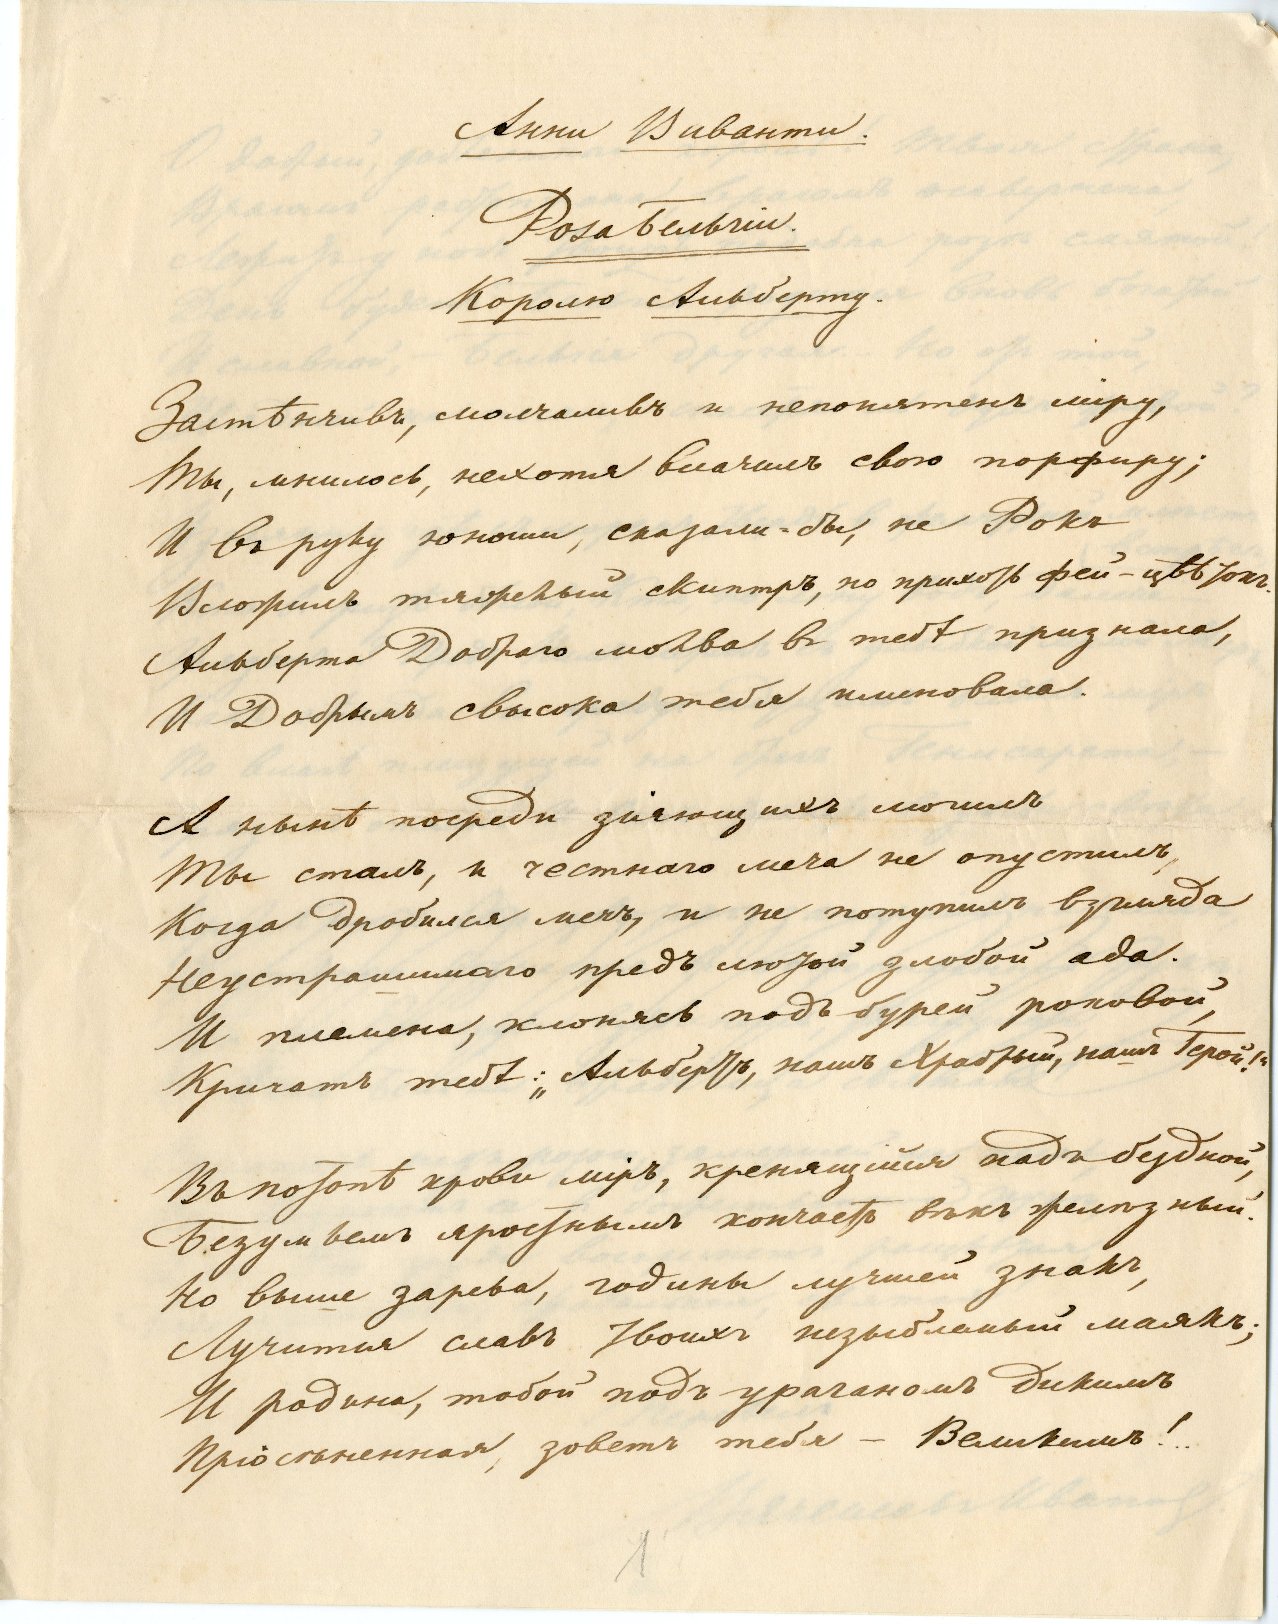 Анни Виванти.
Роза Бельгіи.
Королю Альберту.
Застѣнчивъ, молчаливъ и непонятенъ міру,
Ты, мнилось, нехотя влачилъ свою порфиру;
И въ руку юноши, сказали-бы, не Рокъ
Вложилъ тяжелый скиптръ, но прихоть фей – цвѣтокъ.
Альберта Добраго молва въ тебѣ признала,
И Добрымъ свысока тебя именовала.
А нынѣ посреди зіяющихъ могилъ
Ты сталъ, и честнаго меча не опустилъ,
Когда дробился мечъ, и не потупилъ взгляда
Неустрашимаго предъ лютой злобой ада.
И племена, клонясь подъ бурей роковой,
Кричатъ тебѣ: „Альбертъ, нашъ Храбрый, нашъ Герой!“
Въ потопѣ крови міръ, кренящійся надъ бездной,
Безумьемъ яростнымъ кончаетъ вѣкъ желѣзный.
Но выше зарева, годины лучшей знакъ,
Лучится славъ твоихъ незыблемый маякъ;
И родина, тобой подъ ураганомъ дикимъ
Пріосѣненная, зоветъ тебя – Великимъ!..
1